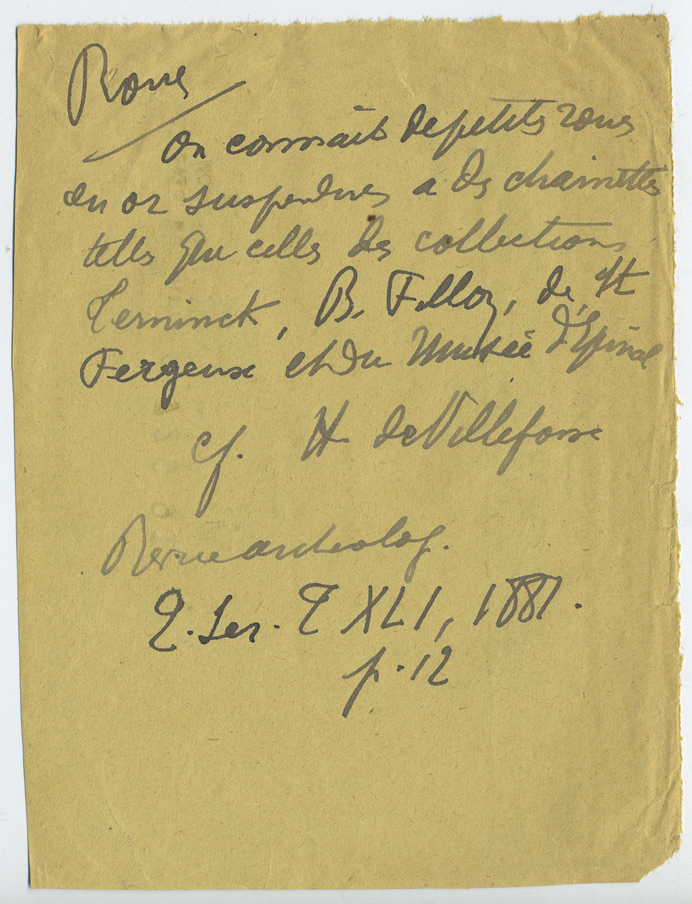 Roue
On connait de petits roues
en or suspendues a des chainettes
telles que celles des collections
Terninck, B. Fillon, de St
Fergeux et du Musée d'Epinal
cf. H. de Villefosse
Revue archeolog.
2. Ser. T XLI, 1881.
p. 12